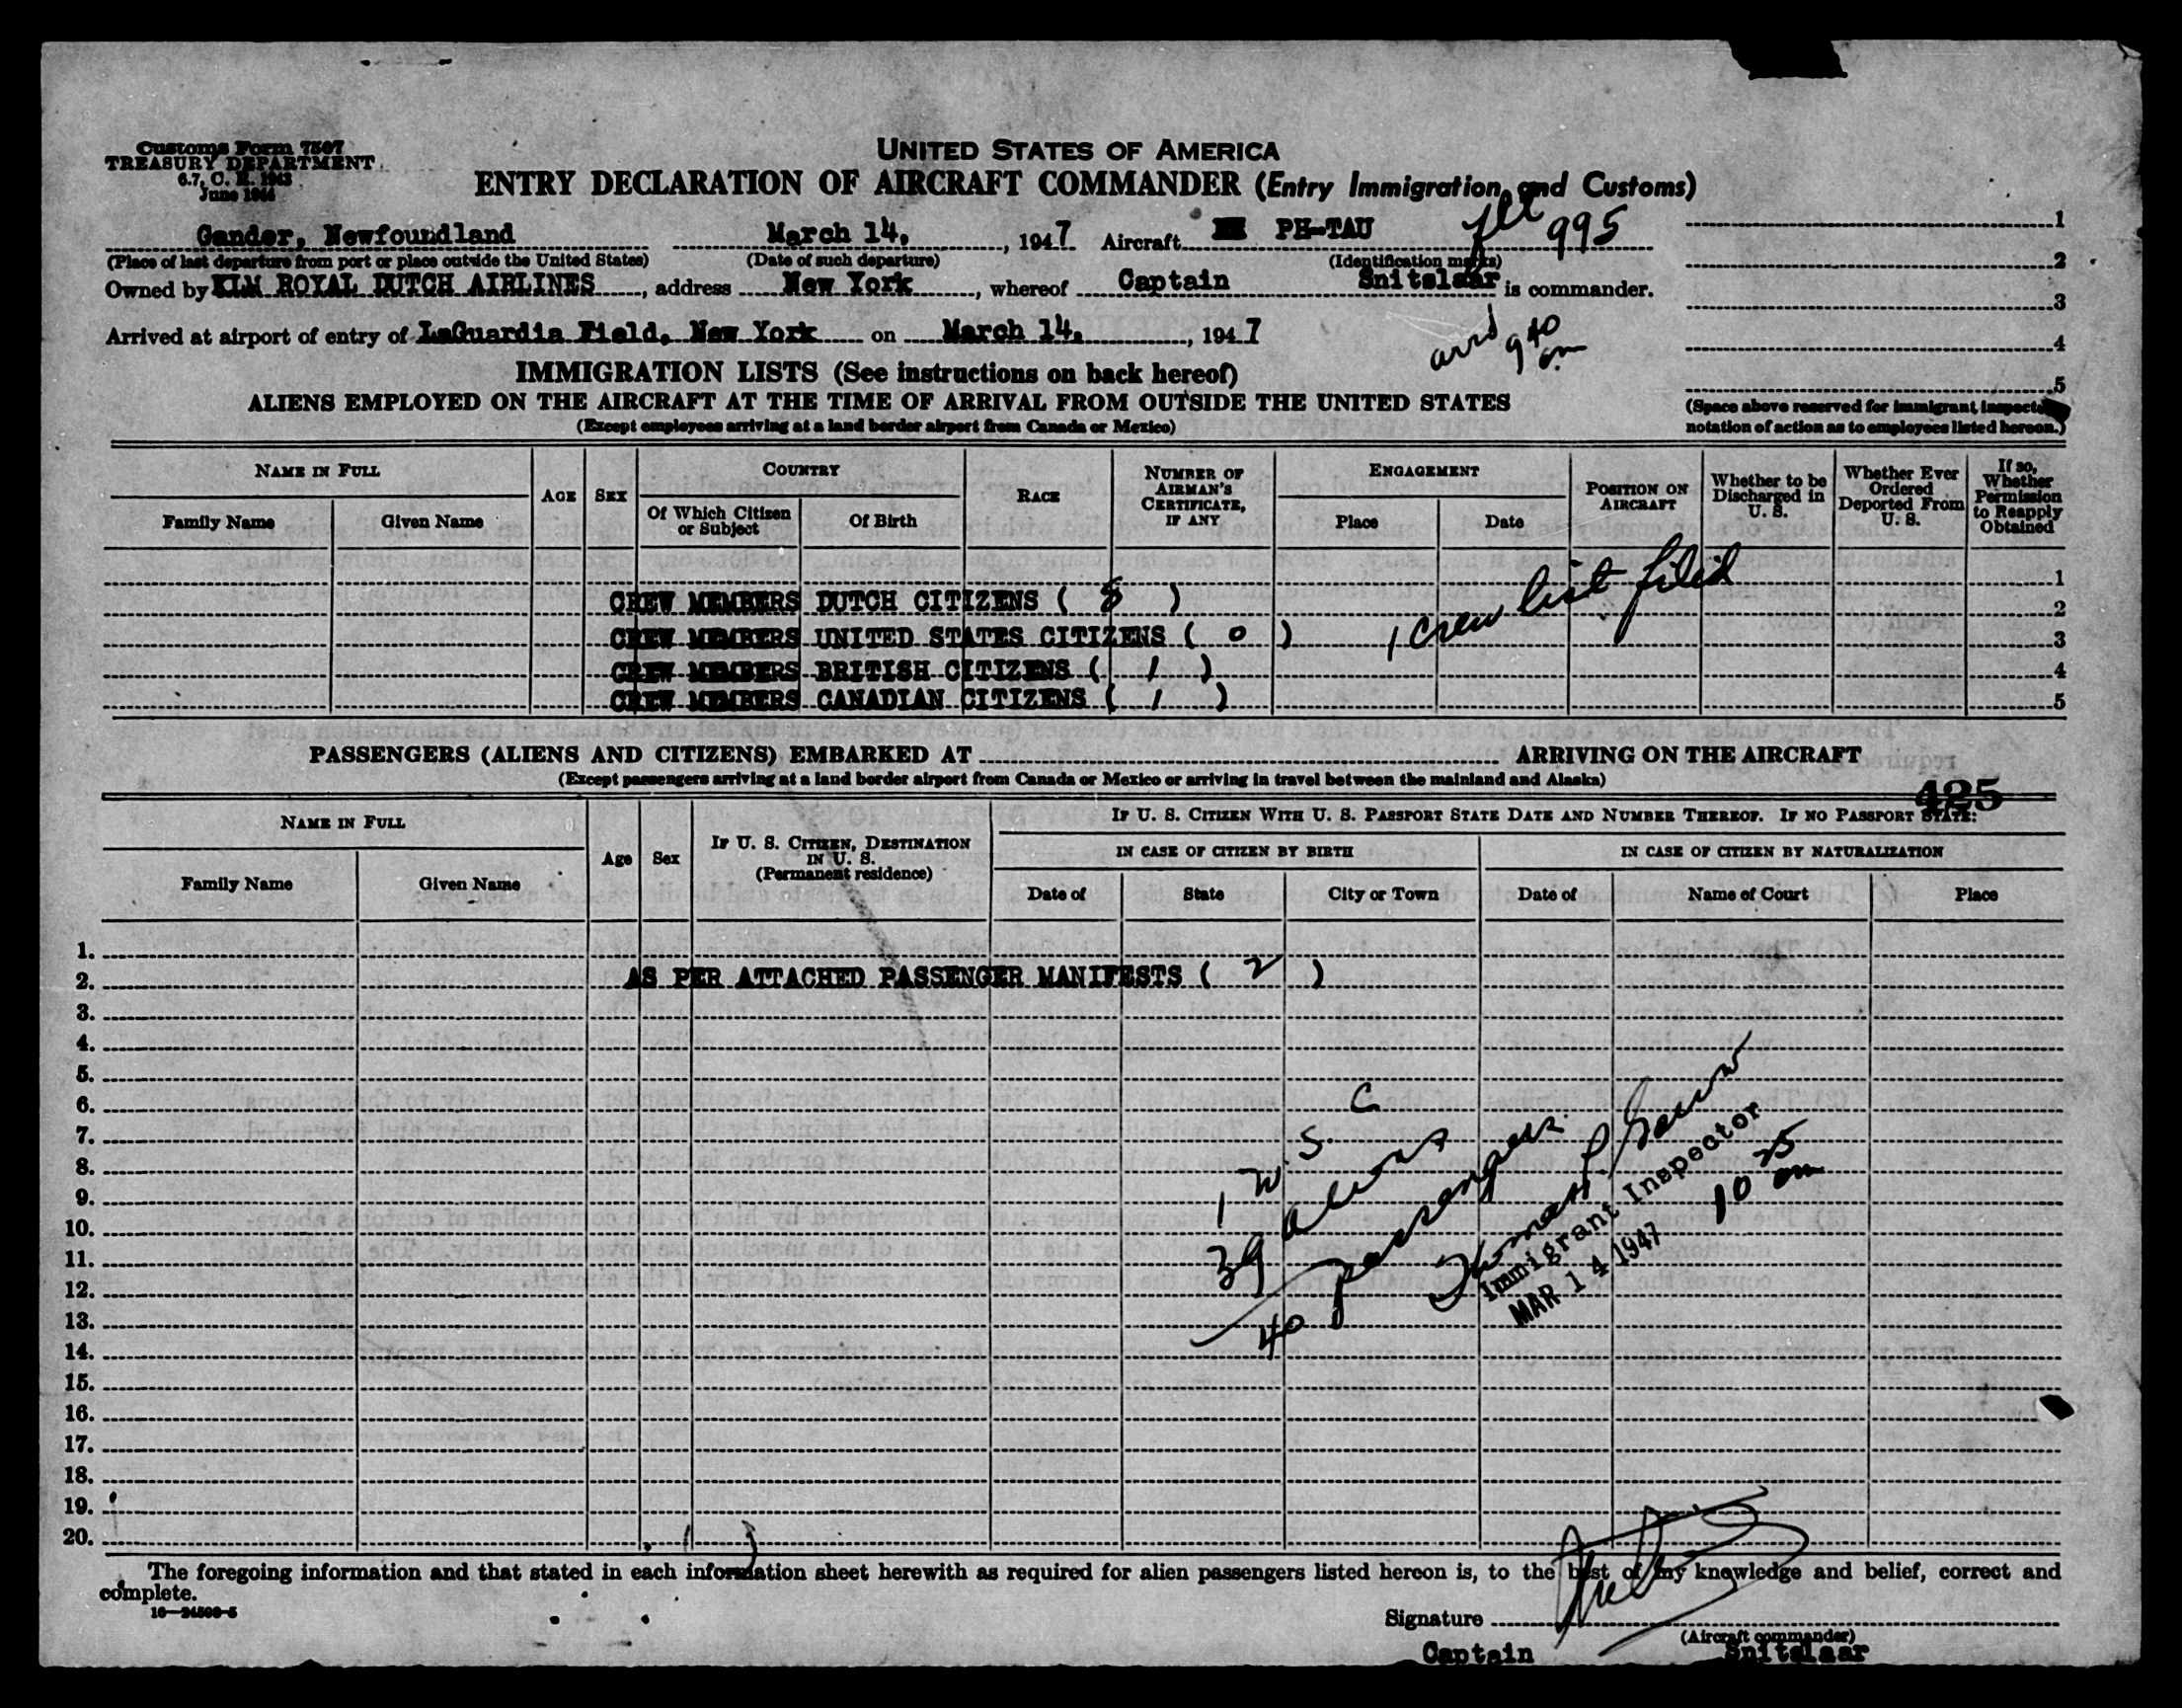 Customs Form 7507
TREASURY DEPARTMENT
6.7, C. R. 1943
June 1944
UNITED STATES OF AMERICA
ENTRY DECLARATION OF AIRCRAFT COMMANDER (Entry Immigration and Customs)
Gander, Newfoundland March 14, , 1947 Aircraft PH-TAU flt 995
(Place of last departure from port or place outside the United States) (Date of such departure) (Identification marks)
Owned by KLM ROYAL DUTCH AIRLINES , address New York , whereof Captain Snitslaar is commander.
Arrived at airport of entry of LaGuardia Field, New York on March 14, , 1947
arrd 9 40 am
1
2
3
4
5
(Space above reserved for immigrant inspector's
notation of action as to employees listed hereon.)
IMMIGRATION LISTS (See instructions on back hereof)
ALIENS EMPLOYED ON THE AIRCRAFT AT THE TIME OF ARRIVAL FROM OUTSIDE THE UNITED STATES
(Except employees arriving at a land border airport from Canada or Mexico)
NAME IN FULL
Family Name Given Name
AGE SEX
COUNTRY
Of Which Citizen or Subject Of Birth
RACE
NUMBER OF AIRMAN'S CERTIFICATE, IF ANY
ENGAGEMENT
Place Date
POSITION ON AIRCRAFT
Whether to be Discharged in U. S.
Whether Ever Ordered Deported From U. S.
If so, Whether Permission to Reapply Obtained
1
CREW MEMBERS DUTCH CITIZENS ( 8 ) 2
1 crew list filed
CREW MEMBERS UNITED STATES CITIZENS ( 0 ) 3
CREW MEMBERS BRITISH CITIZENS ( 1 ) 4
CREW MEMBERS CANADIAN CITIZENS ( 1 ) 5
PASSENGERS (ALIENS AND CITIZENS) EMBARKED AT ARRIVING ON THE AIRCRAFT
(Except passengers arriving at a land border airport from Canada or Mexico or arriving in travel between the mainland and Alaska)
425
NAME IN FULL
Family Name Given Name
Age Sex
IF U. S. CITIZEN, DESTINATION IN U. S.
(Permanent residence)
IF U. S. CITIZEN WITH U. S. PASSPORT STATE DATE AND NUMBER THEREOF. IF NO PASSPORT STATE:
IN CASE OF CITIZEN BY BIRTH IN CASE OF CITIZEN BY NATURALIZATION
Date of State City or Town Date of Name of Court Place
1.
2. AS PER ATTACHED PASSENGER MANIFESTS ( 2 )
3.
4.
5.
6.
7.
8.
9.
10.
11.
12.
13.
14.
15.
16.
17.
18.
19.
20.
1 U. S. C
39 aliens
40 passengers
Thomas P.
Immigrant Inspector
MAR 14 1947
10 25 am
The foregoing information and that stated in each information sheet herewith as required for alien passengers listed hereon is, to the best of my knowledge and belief, correct and
complete.
16—24508-5
Signature
(Aircraft commander)
Captain Snitslaar